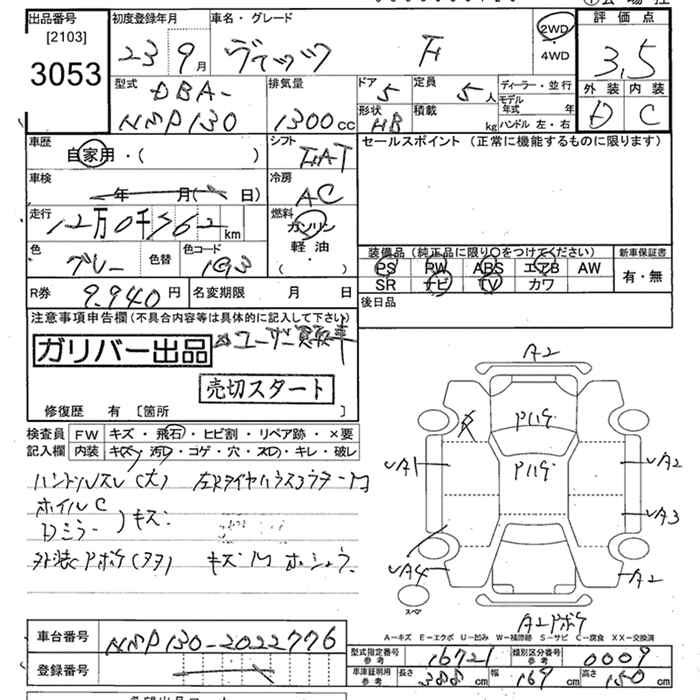 出品番号 初度登録年月 車名・グレード 2WD 評価点
[2103] 23 9月 F ・ 3.5
3053 4WD
型式 排気量 ドア 定員 ディーラー・並行 外装 内装
DBA- 5 5人 モデル年式 年 D C
NMP130 1300cc 形状 HB 積載 kg ハンドル 左・右
車歴 シフト セールスポイント (正常に機能するものに限ります)
自家用・( ) FAT
車検 年 月( 日) 冷房 AC
走行 12万0千562km 燃料
ガソリン・
軽油・
( )
色 グレー 色替 色コード 1G3 装備品(純正品に限り○をつけてください) 新車保証書
PS PW ABS エアB AW 有・無
SR ナビ TV カワ
R券 9,940円 名変期限 月 日 後日品
注意事項申告欄(不具合内容等は具体的に記入して下さい)
ガリバー出品 ユーザー買取車
売切スタート
修復歴 有 [箇所 ]
検査員 FW キズ・飛石・ヒビ割・リペア跡・×要
記入欄 内装 キズ・汚レ・コゲ・穴・スレ・キレ・破レ
ハンドルスレ(大)
ホイルC
Dミラー )キズ
A2
A1 A2
A3
A4 A2
スペア
A-キズ E-エクボ U-凹み W-補修跡 S-サビ C-腐食 XX-交換済
車台番号 NMP130-2022776
型式指定番号 参考 16721 類別区分番号 参考 0009
登録番号 車庫証明用 参考 長さ 388cm 幅 169cm 高さ 150cm